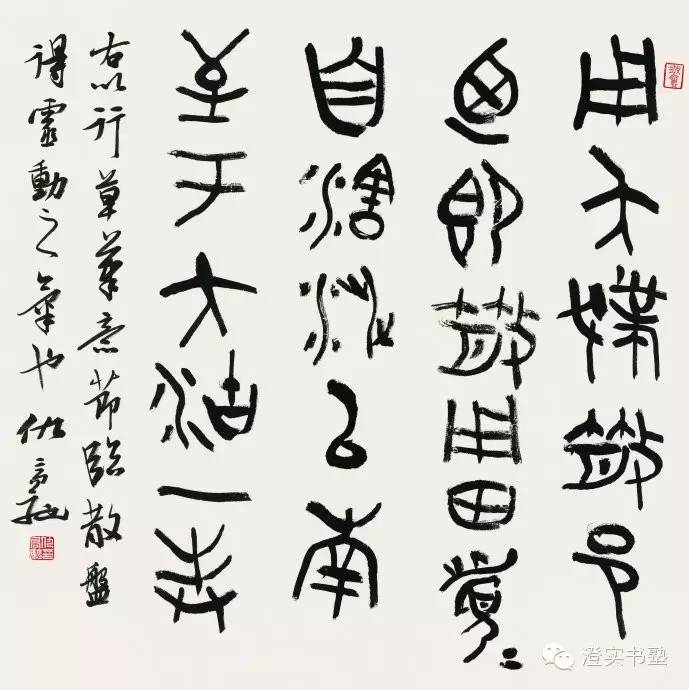 用夨撲散邑
迺即散用田眉
自瀗涉以南
至于大沽一封
右以行草筆意節臨散盤
得靈動之氣也
澄实书塾